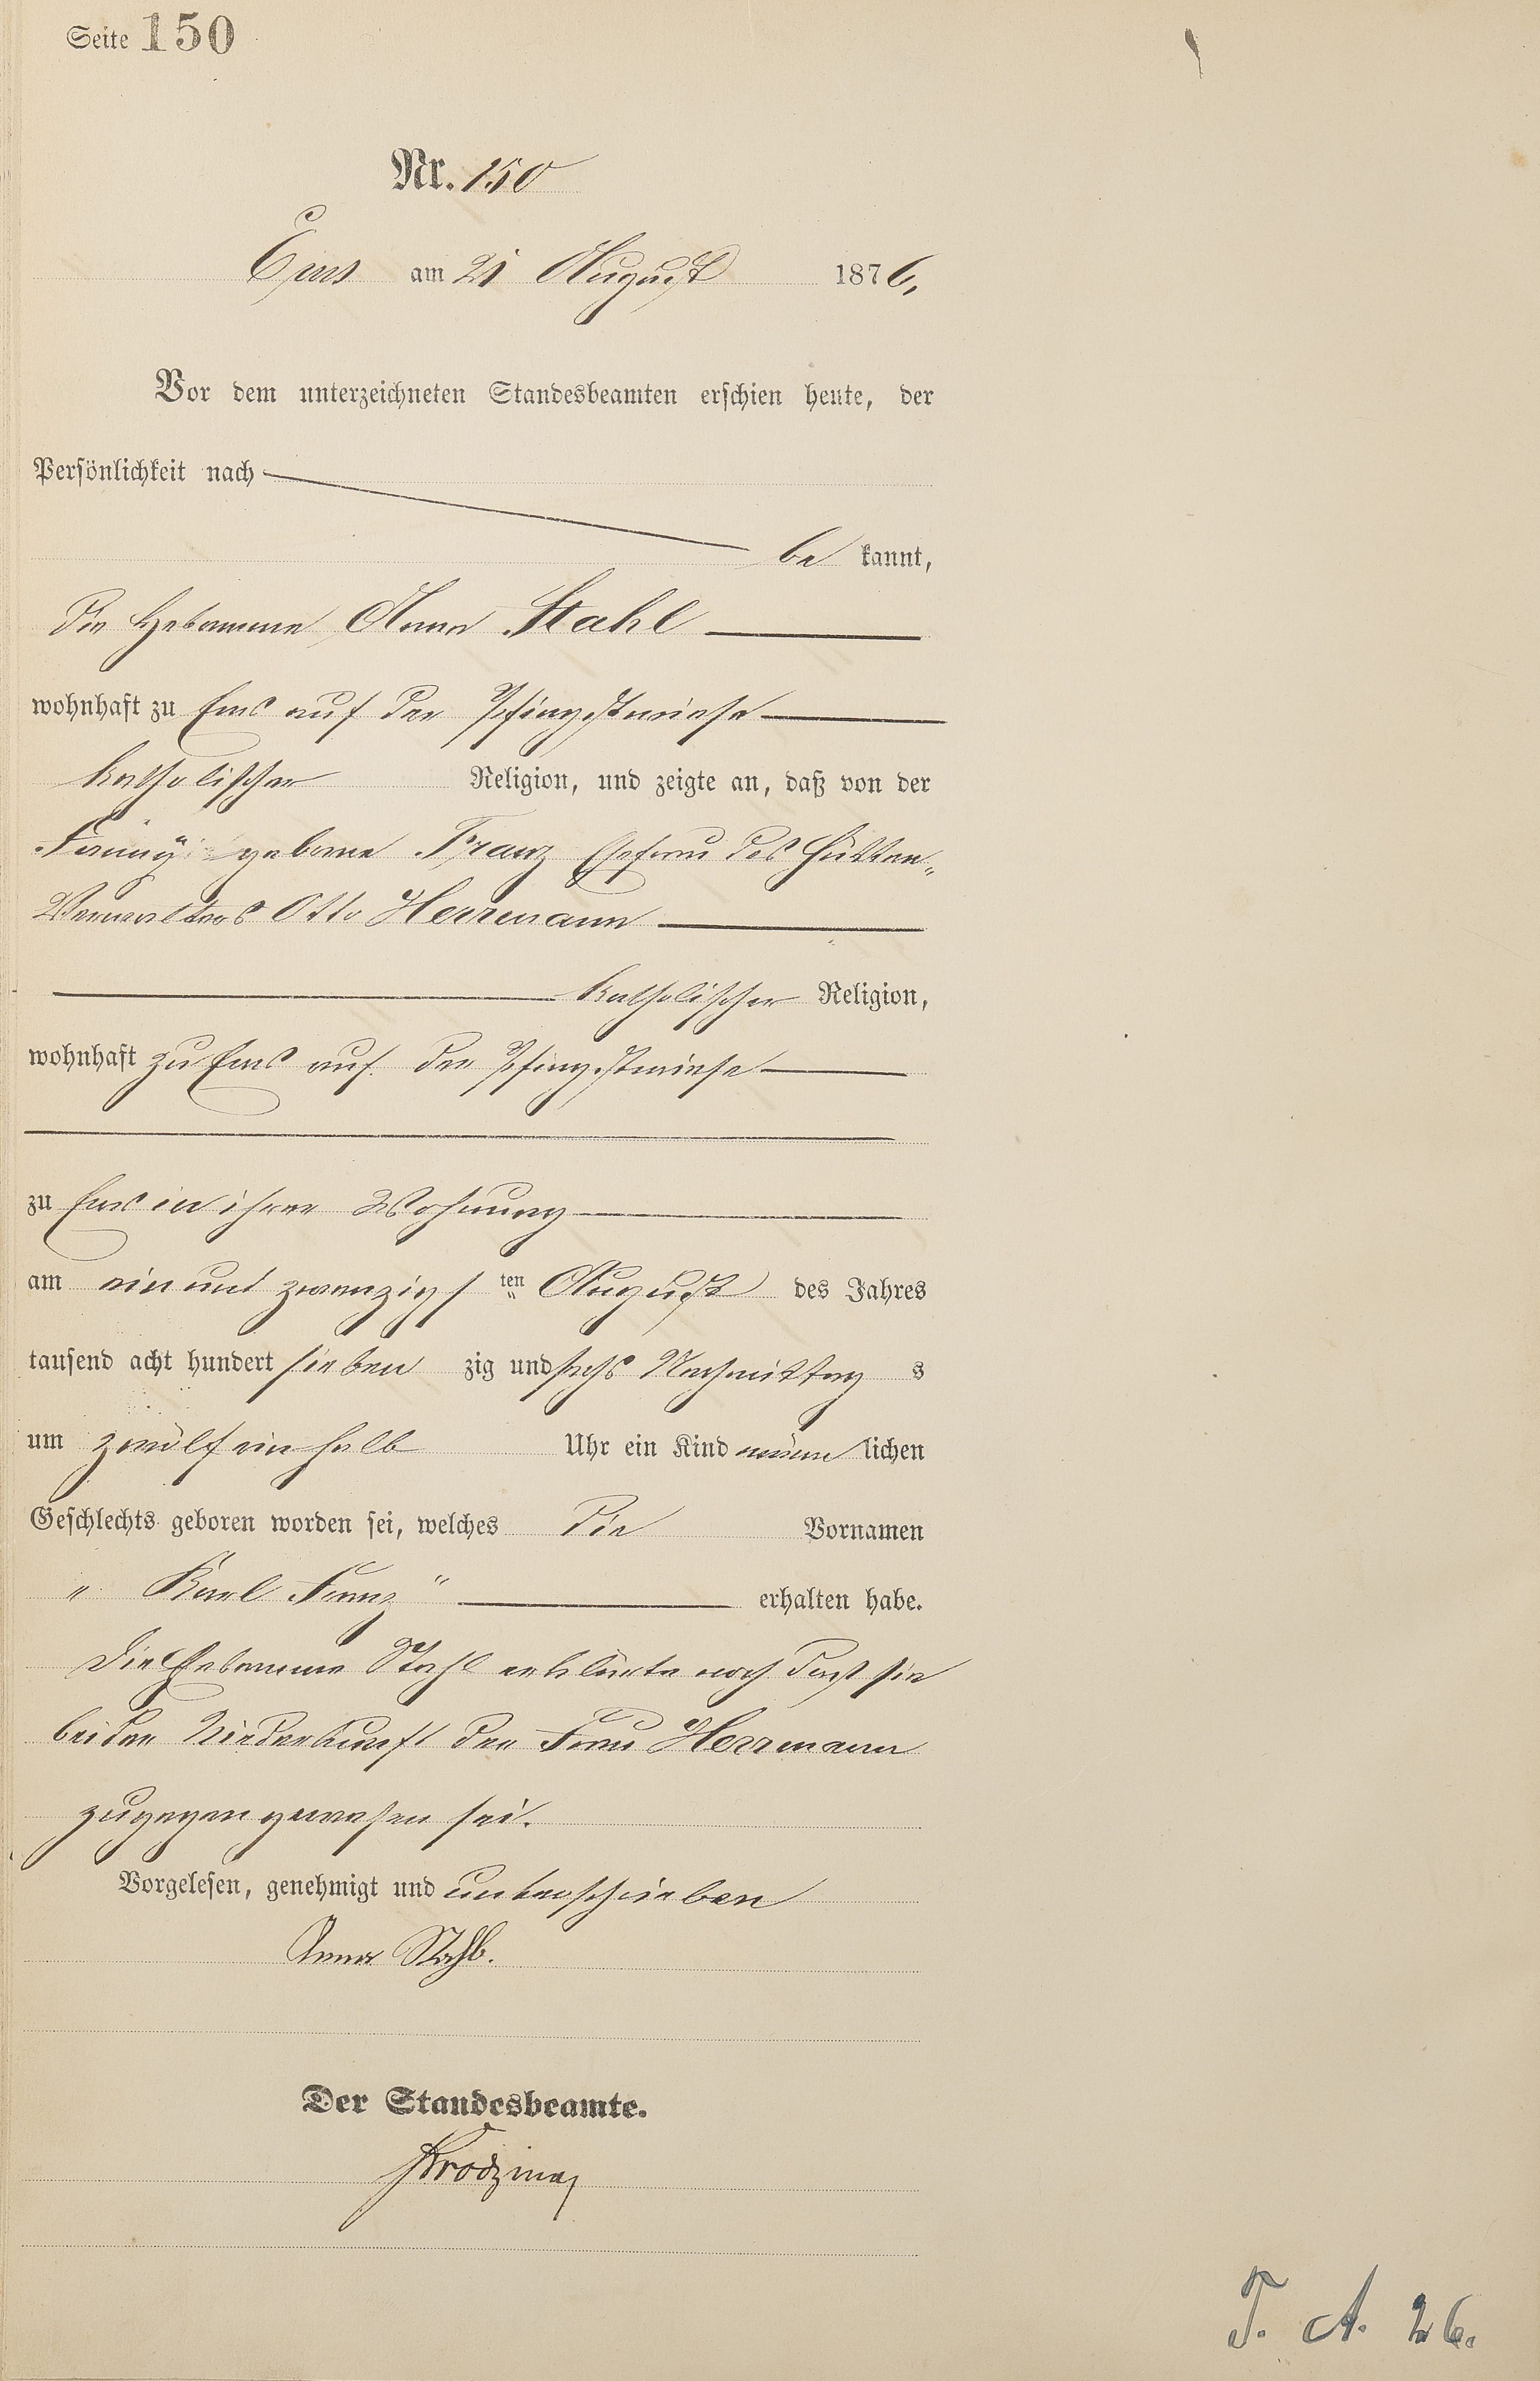 Seite 150
Nr. 150
Ems am 21 August 1876,
Vor dem unterzeichneten Standesbeamten erschien heute, der
Persönlichkeit nach
be kannt,
die Hebamme Anna Stahl
wohnhaft zu Ems auf der Pfingstwiese
katholischer Religion, und zeigte an, daß von der
Fanny geborne Franz Ehefrau des Hütten-
Verwalters Otto Herrmann
katholischer Religion,
wohnhaft zu Ems auf der Pfingstwiese
zu Ems in ihrer Wohnung
am ein und zwanzigs ten August des Jahres
tausend acht hundert sieben zig und sechs Nachmittag s
um zwölf ein halb Uhr ein Kind männ lichen
Geschlechts geboren worden sei, welches die Vornamen
„ Karl Franz “ erhalten habe.
Die Hebamme Stahl erklärte noch daß sie
bei der Niederkunft der Frau Herrmann
zugegen gewesen sei.
Vorgelesen, genehmigt und unterschrieben
Anna Stahl.
Der Standesbeamte.
T. A. 26.